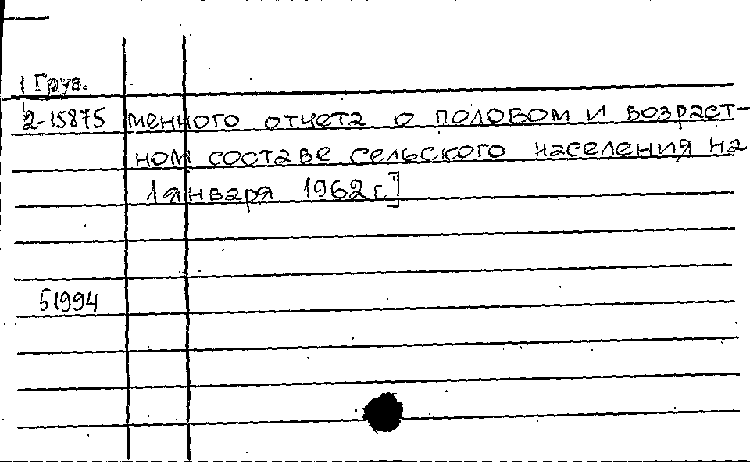 1 Груз.
2-15875 менного отчета о половом и возраст-
ном составе сельского населения на
1 января 1962 г.]
51994